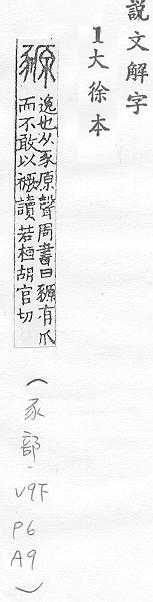 說文解字
1大徐本
豲
逸也从豕原聲周書曰豲有爪
而不敢以撅讀若桓胡官切
(豕部.
V9下
P6
A9)